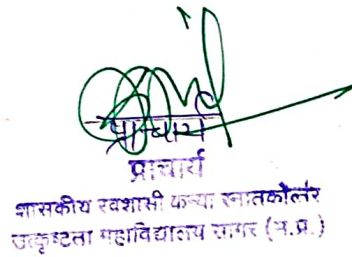 प्राचार्य
प्राचार्य
शासकीय स्वशासी कन्या स्नातकोत्तर
उत्कृष्टता महाविद्यालय सागर (म.प्र.)